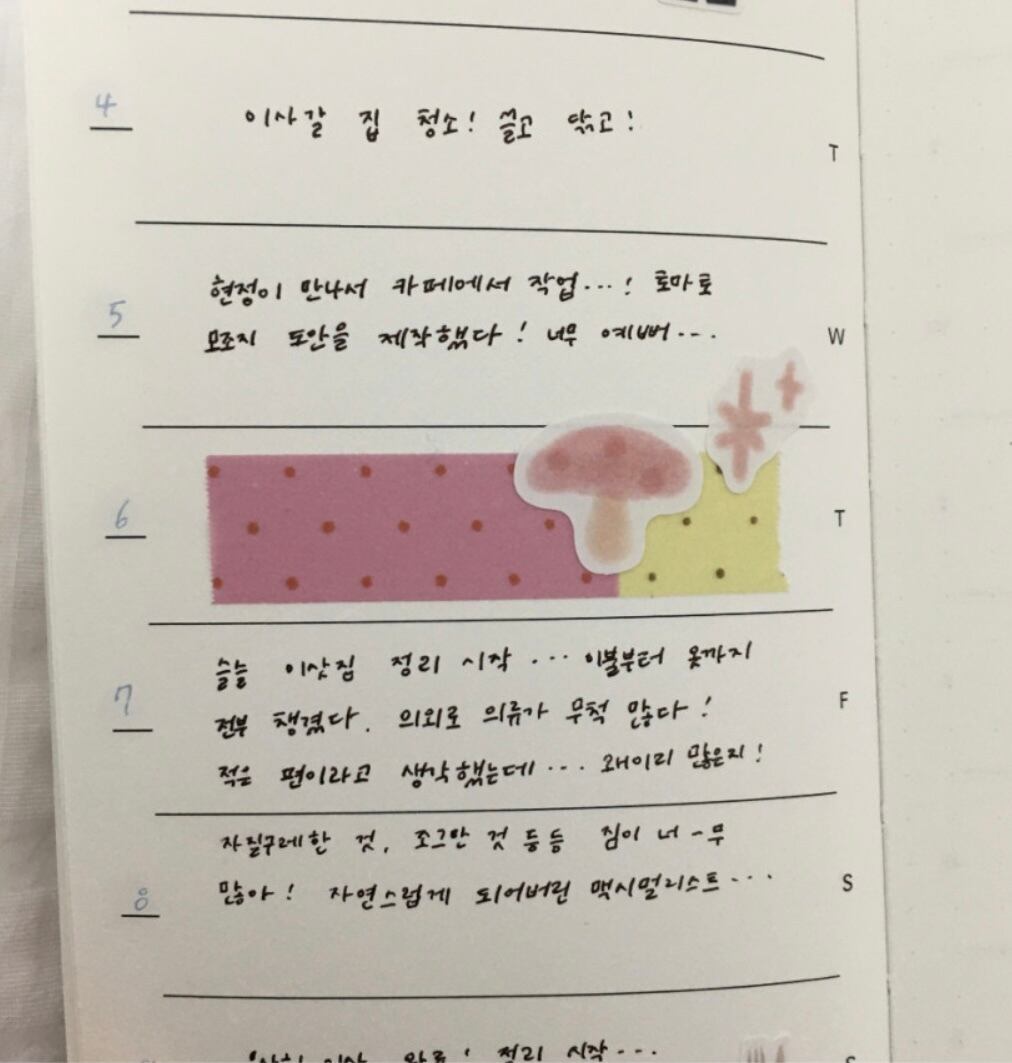 4
이사갈 집 청소! 쓸고 닦고!
T
5
현정이 만나서 카페에서 작업...! 토마토
모조지 도안을 제작했다! 너무 예뻐...
W
6
T
7
슬슬 이삿짐 정리 시작... 이불부터 옷까지
전부 챙겼다. 의외로 의류가 무척 많다!
적은 편이라고 생각했는데... 왜이리 많은지!
F
8
자질구레한 것, 조그만 것 등등 짐이 너-무
많아! 자연스럽게 되어버린 맥시멀리스트...
S
이사 완료! 정리 시작...